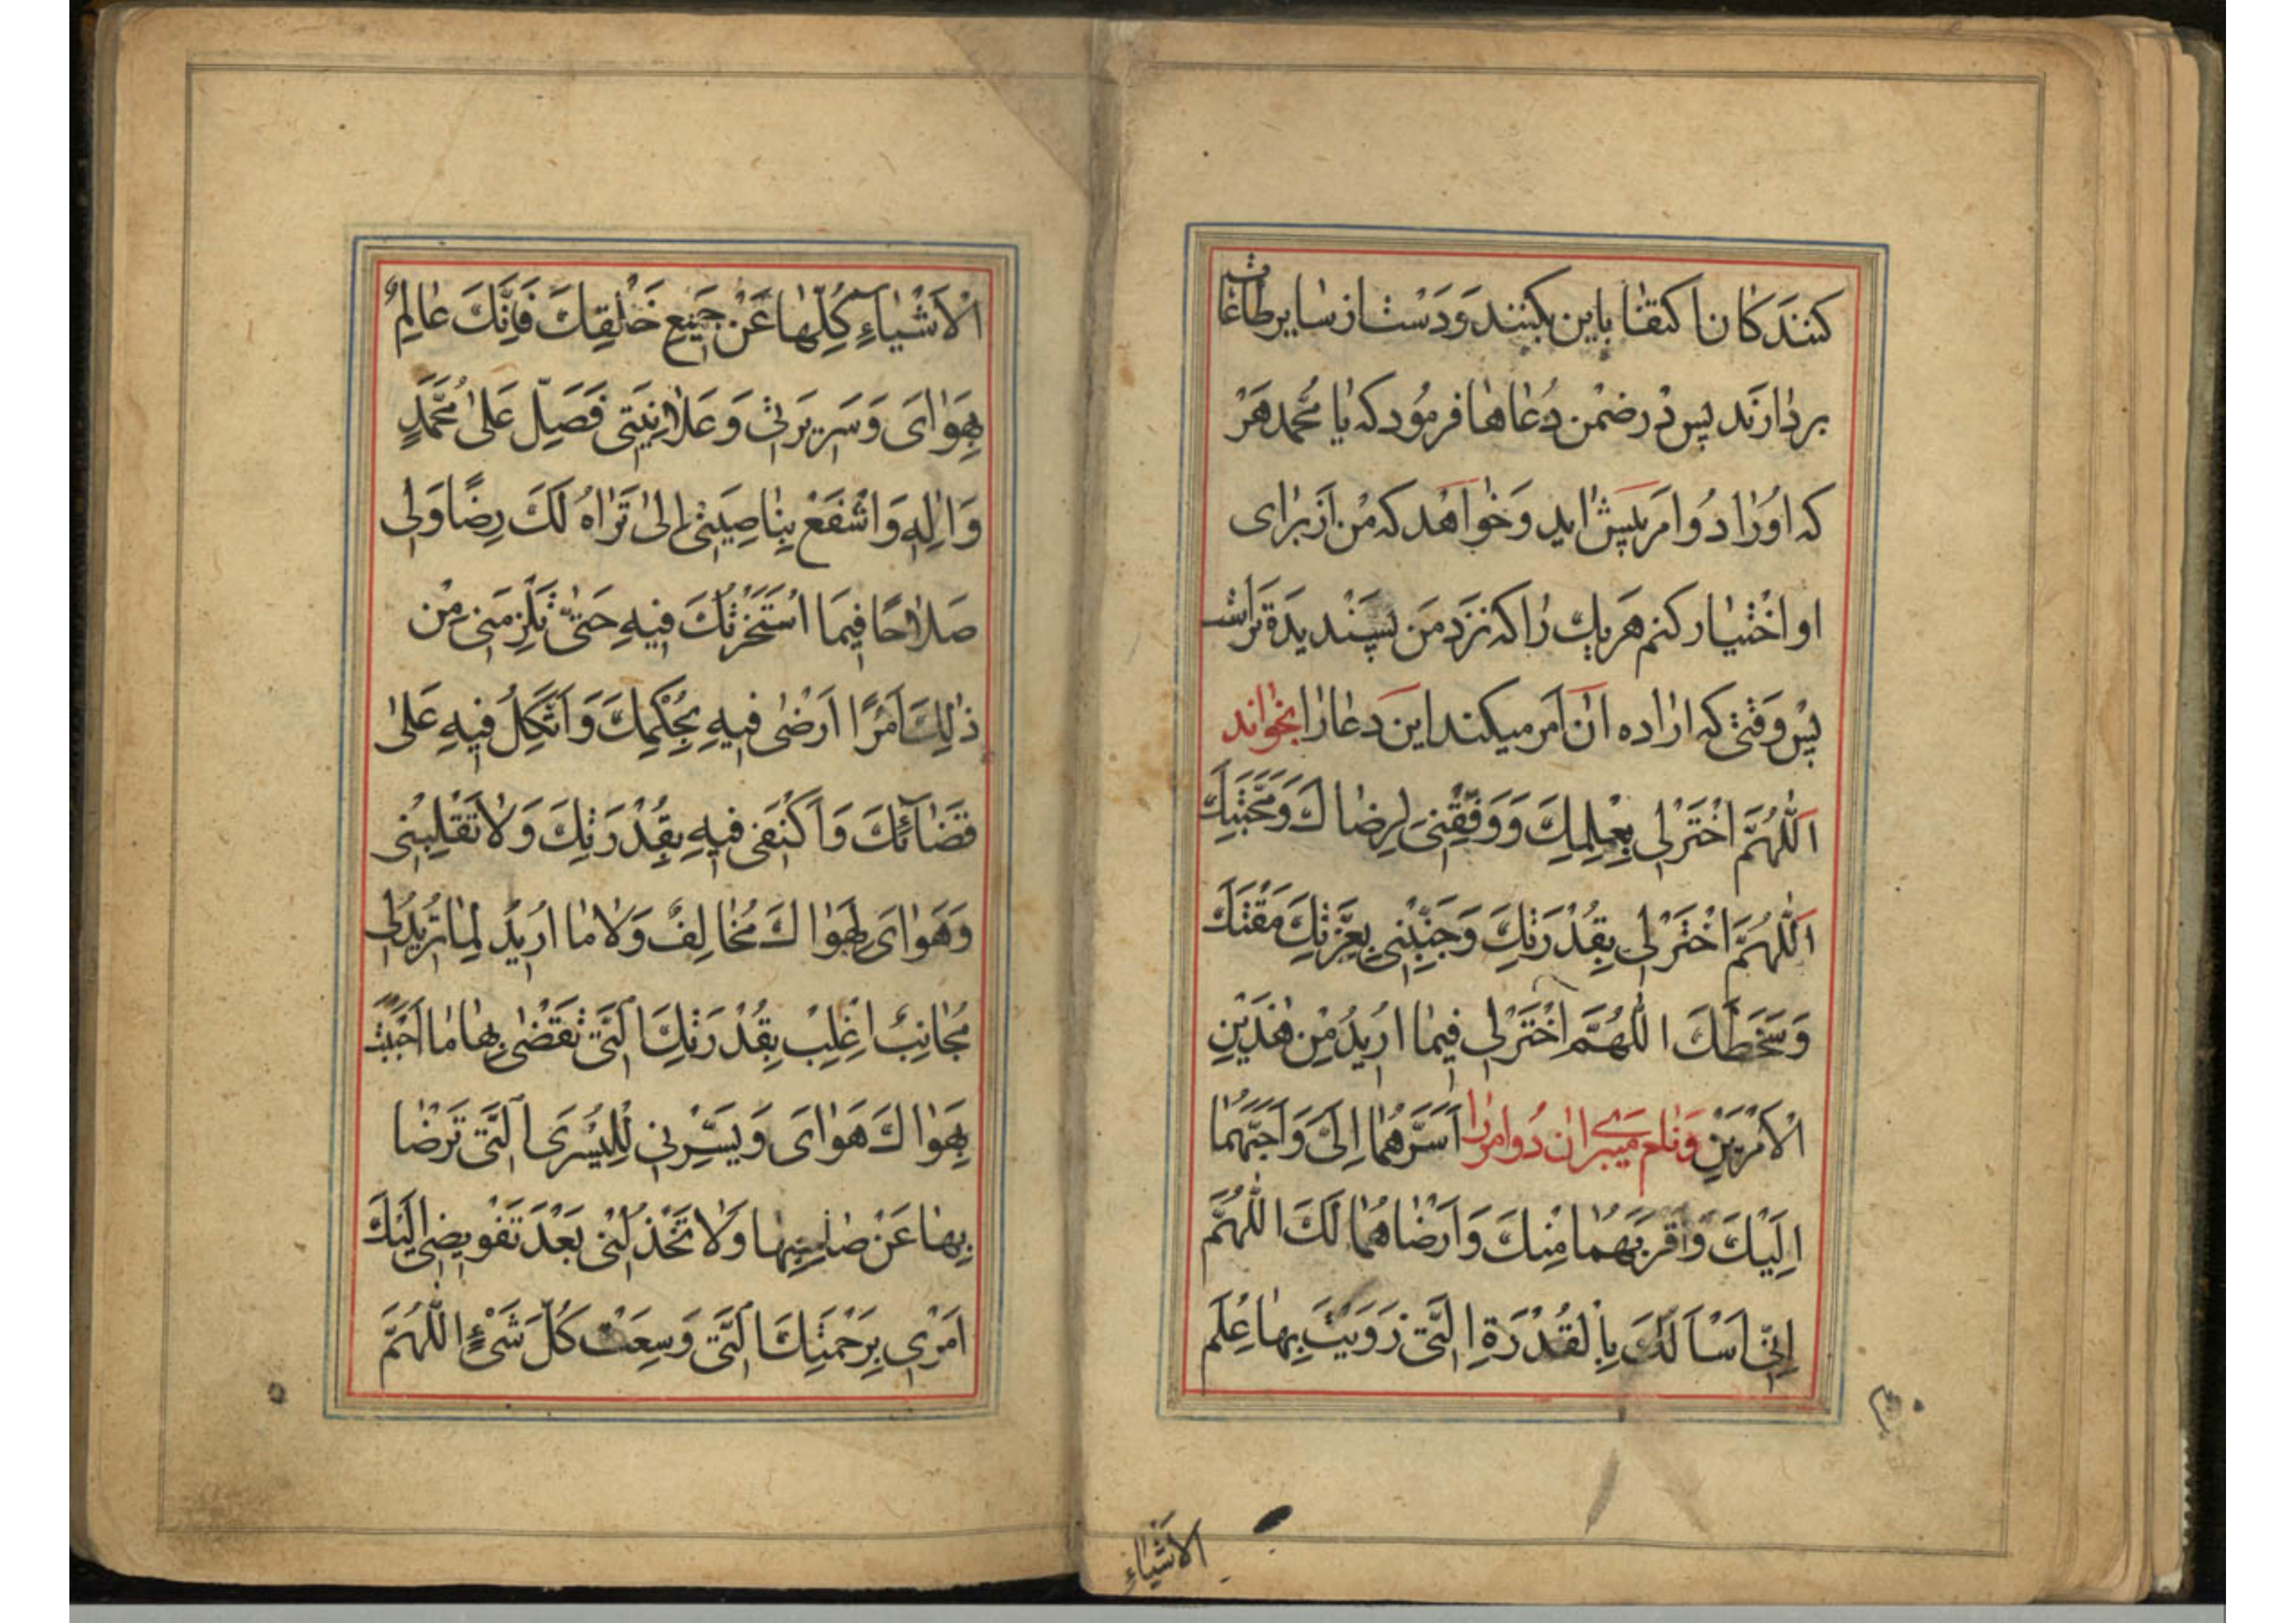 کنندکان اکتفا باین بکنند وَدَست از سایر طاعات
بردارَند پس دَر ضمن دُعاها فرمود که یا محمّد هَرْ
که اورا دُو امر پیش اید وَخواهَد که مَن اَز برای
او اختیار کنم هَر یك را که نزد مَن پسَندیدَه تر است
پس وَقتی که اراده ان اَمر میکند این دَعا را بخواند
اَللّٰهُمَّ اخْتَرْلِی بِعِلْمِكَ وَوَفِّقْنِی لِرِضَاكَ وَمَحَبَّتِكَ
اَللّٰهُمَّ اخْتَرْلِی بِقُدْرَتِكَ وَجَنِّبْنِی بِعِزَّتِكَ مَقْتَكَ
وَسَخَطَكَ اللّٰهُمَّ اخْتَرْلِی فِیمَا اُرِیدُ مِنْ هٰذَیْنِ
الْاَمْرَیْنِ وَنام میبَرے ان دُو امر را اَسَرَّهُمَا اِلَیَّ وَاَحَبَّهُمَا
اِلَیْكَ وَاَقْرَبَهُمَا مِنْكَ وَاَرْضَاهُمَا لَكَ اللّٰهُمَّ
اِنِّی اَسْاَلُكَ بِالْقُدْرَةِ الَّتِی زَوَیْتَ بِهَا عِلْمَ
الاَشْیَاءِ
الْاَشْیَاءِ كُلِّهَا عَنْ جَمِیعِ خَلْقِكَ فَاِنَّكَ عَالِمٌ
بِهَوَایَ وَسَرِیرَتِی وَعَلَانِیَتِی فَصَلِّ عَلٰی مُحَمَّدٍ
وَاٰلِهِ وَاشْفَعْ بِنَاصِیَتِی اِلٰی تَرَاهُ لَكَ رِضًا وَلِی
صَلَاحًا فِیمَا اسْتَخَرْتُكَ فِیهِ حَتّٰی تُلْزِمَنِی مِنْ
ذٰلِكَ اَمْرًا اَرْضٰی فِیهِ بِحُكْمِكَ وَاَتَّكِلُ فِیهِ عَلٰی
قَضَآئِكَ وَاَكْتَفِی فِیهِ بِقُدْرَتِكَ وَلَا تَقْلِبْنِی
وَهَوَایَ لِهَوَاكَ مُخَالِفٌ وَلَا مَا اُرِیدُ لِمَا تُرِیدُ لِی
مُجَانِبٌ اِغْلِبْ بِقُدْرَتِكَ الَّتِی تَقْضِی بِهَا مَا اَحْبَبْتَ
بِهَوَاكَ هَوَایَ وَیَسِّرْنِی لِلْیُسْرَی الَّتِی تَرْضَا
بِهَا عَنْ صَاحِبِهَا وَلَا تَخْذُلْنِی بَعْدَ تَفْوِیضِی اِلَیْكَ
اَمْرِی بِرَحْمَتِكَ الَّتِی وَسِعَتْ كُلَّ شَیْءٍ اللّٰهُمَّ